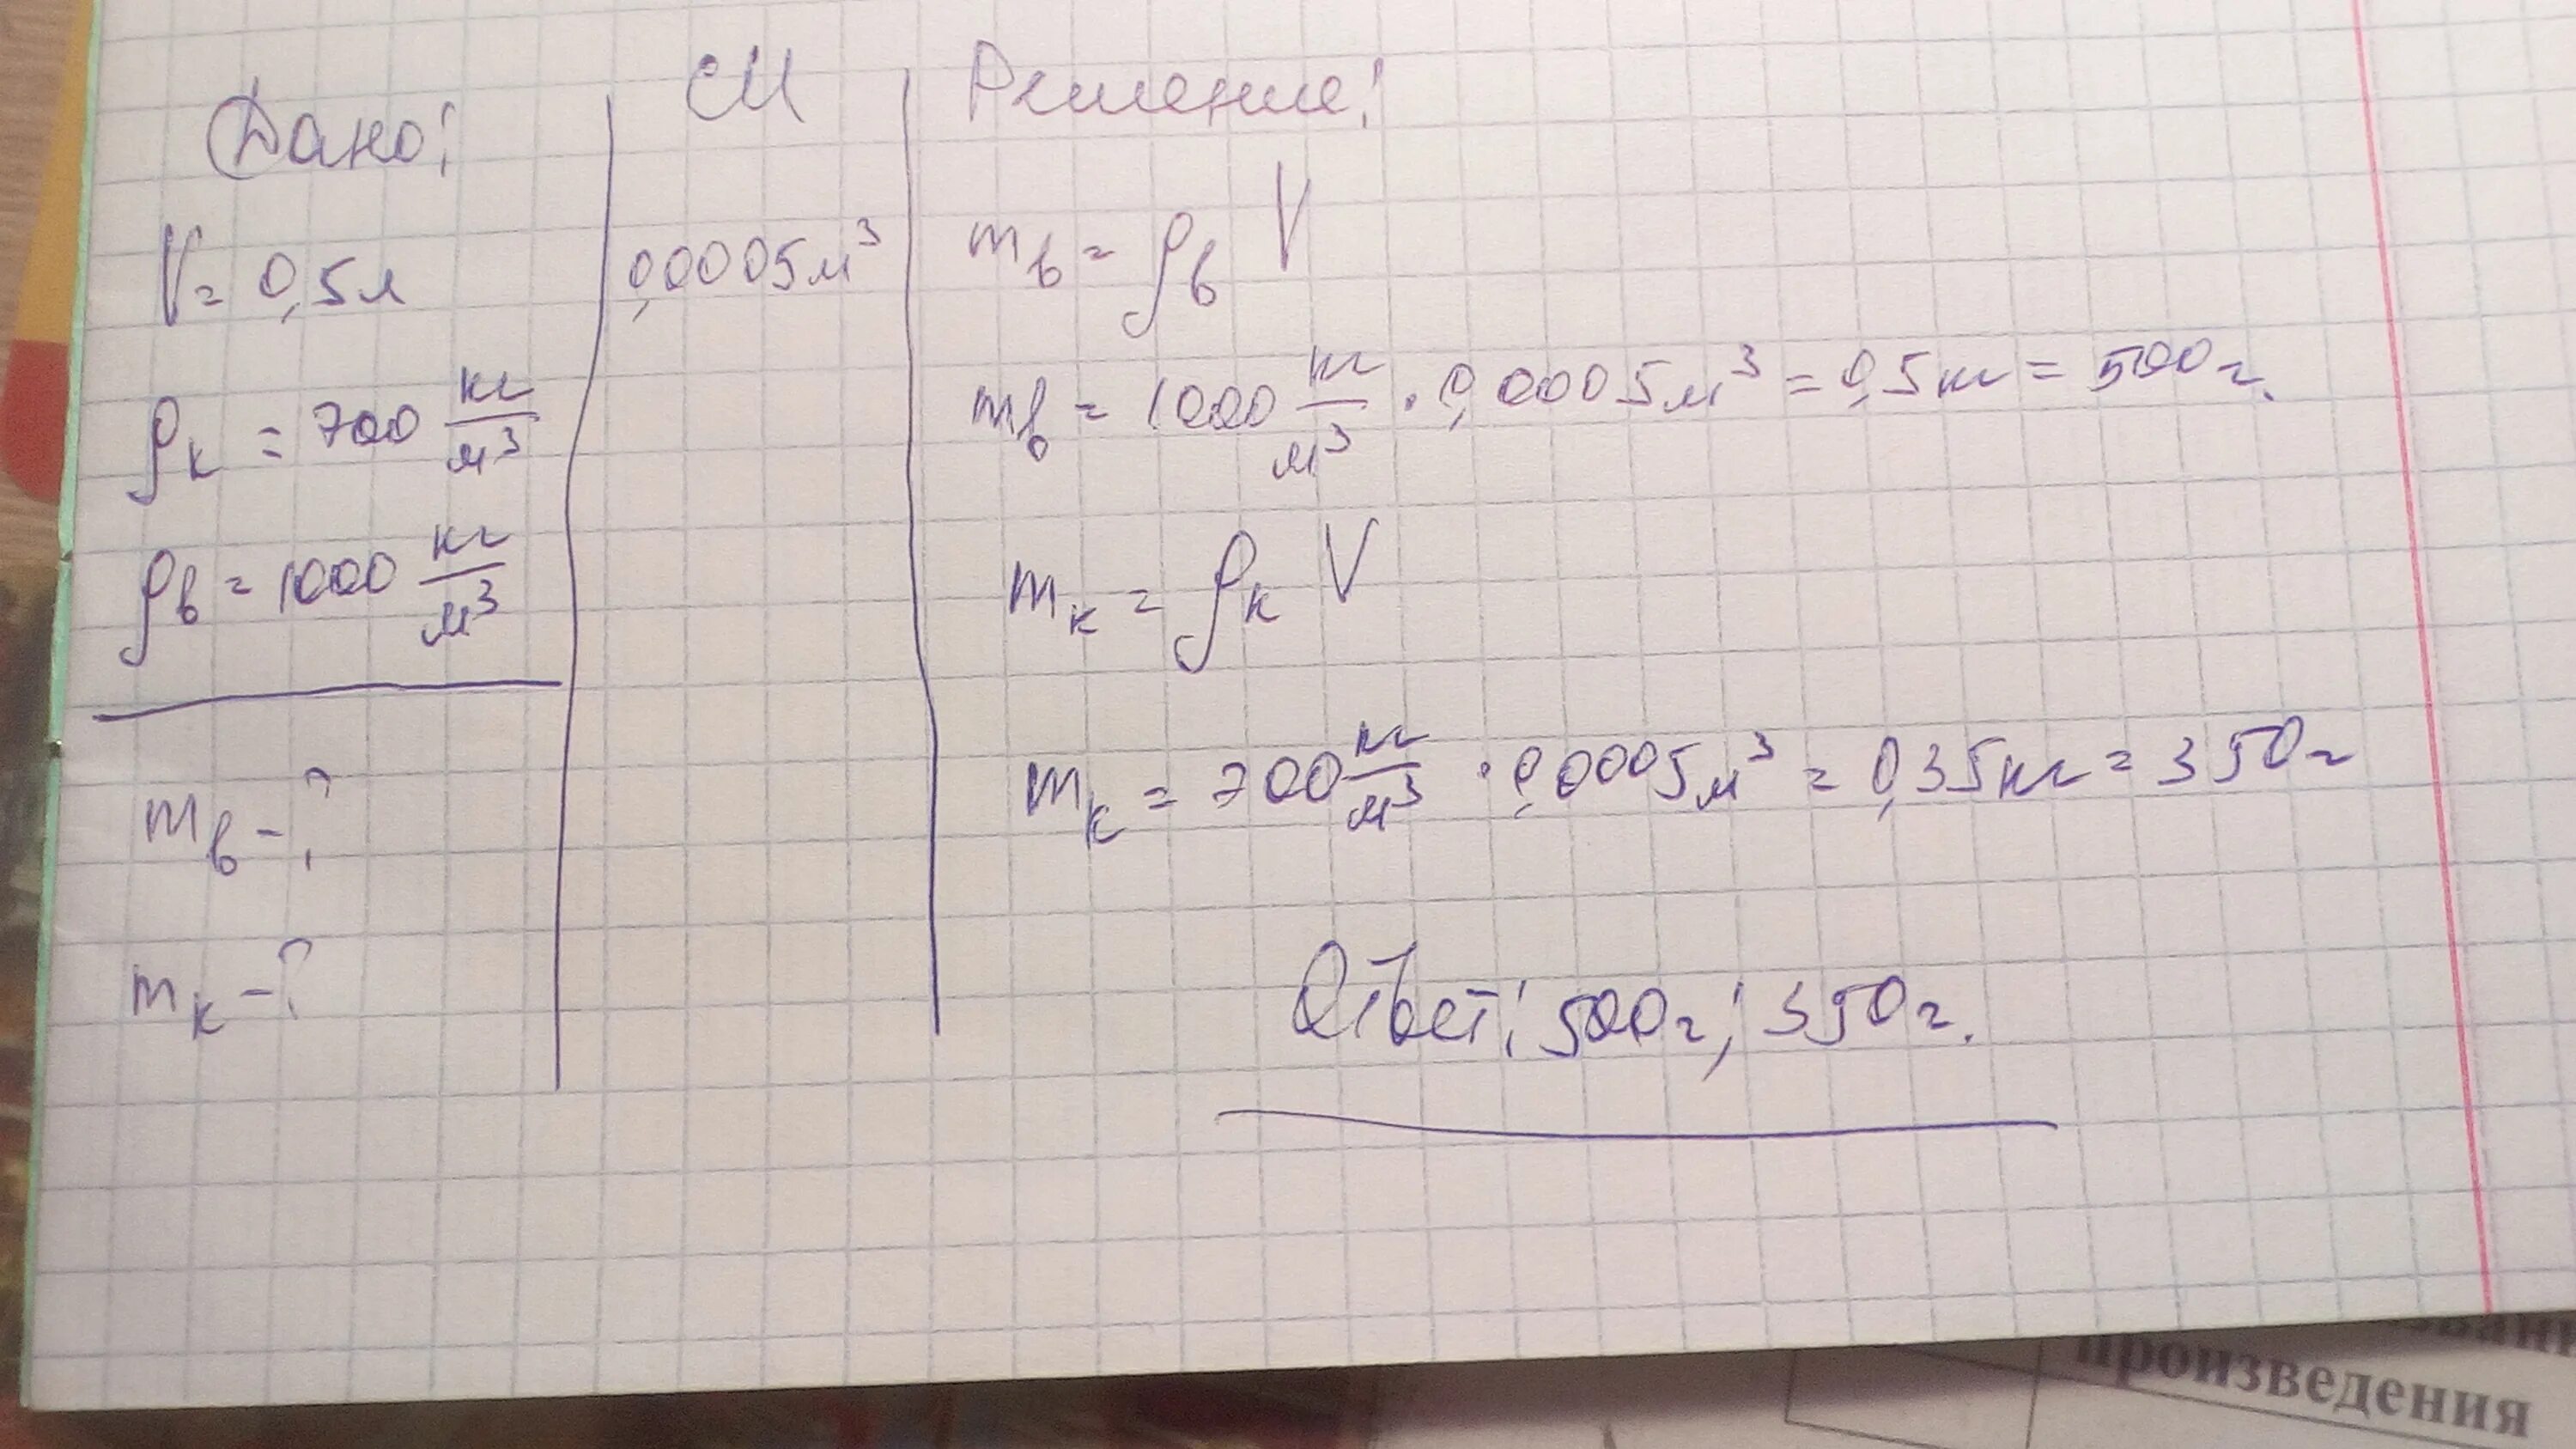 Дано:
V = 0,5 л
ρк = 700 кг/м³
ρв = 1000 кг/м³
mв - ?
mк - ?
СИ
0,0005 м³
Решение:
mв = ρв V
mв = 1000 кг/м³ · 0,0005 м³ = 0,5 кг = 500 г.
mк = ρк V
mк = 700 кг/м³ · 0,0005 м³ = 0,35 кг = 350 г
Ответ: 500 г; 350 г.
произведения